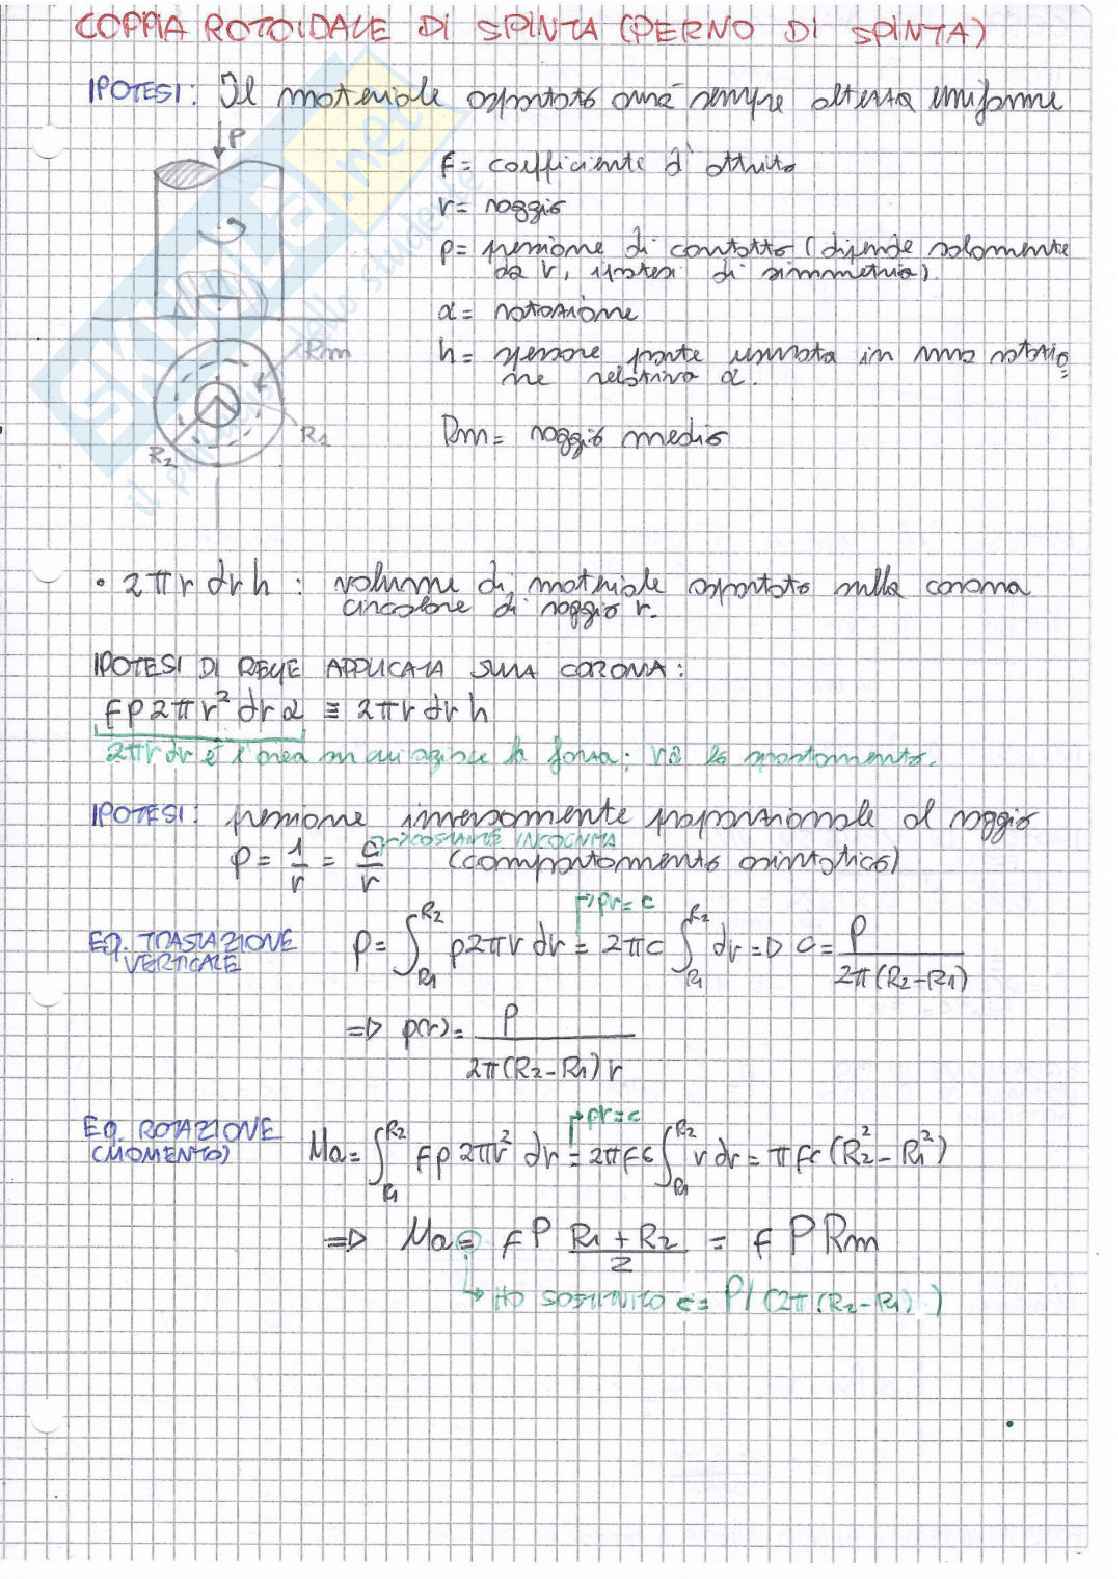 COPPIA ROTOIDALE DI SPINTA (PERNO DI SPINTA)
IPOTESI: Il materiale asportato avrà sempre altezza uniforme
P
f = coefficiente d'attrito
r = raggio
p = pressione di contatto (dipende solamente
da r, ipotesi di simmetria).
α = rotazione
h = spessore parte usurata in una rotazio
ne relativa α.
Rm
Rm = raggio medio
R1
R2
• 2πr dr h : volume di materiale asportato sulla corona
circolare di raggio r.
IPOTESI DI REYE APPLICATA SULLA CORONA:
fp2πr² dr α ≡ 2πr dr h
2πr dr è l'area su cui agisce la forza; rα lo spostamento.
IPOTESI: pressione inversamente proporzionale al raggio
→ COSTANTE INCOGNITA
p = 1/r = c/r (comportamento asintotico)
→ pr = c
EQ. TRASLAZIONE VERTICALE P = ∫_{R1}^{R2} p2πr dr = 2πc ∫_{R1}^{R2} dr => c = P / 2π(R2-R1)
=> p(r) = P / 2π(R2-R1) r
→ pr = c
EQ. ROTAZIONE (MOMENTO) Ma = ∫_{R1}^{R2} fp 2πr² dr = 2πfc ∫_{R1}^{R2} r dr = πfc (R2² - R1²)
=> Ma = fP (R1 + R2)/2 = f P Rm
→ HO SOSTITUITO c = P/(2π(R2-R1))
SKUOLA.net